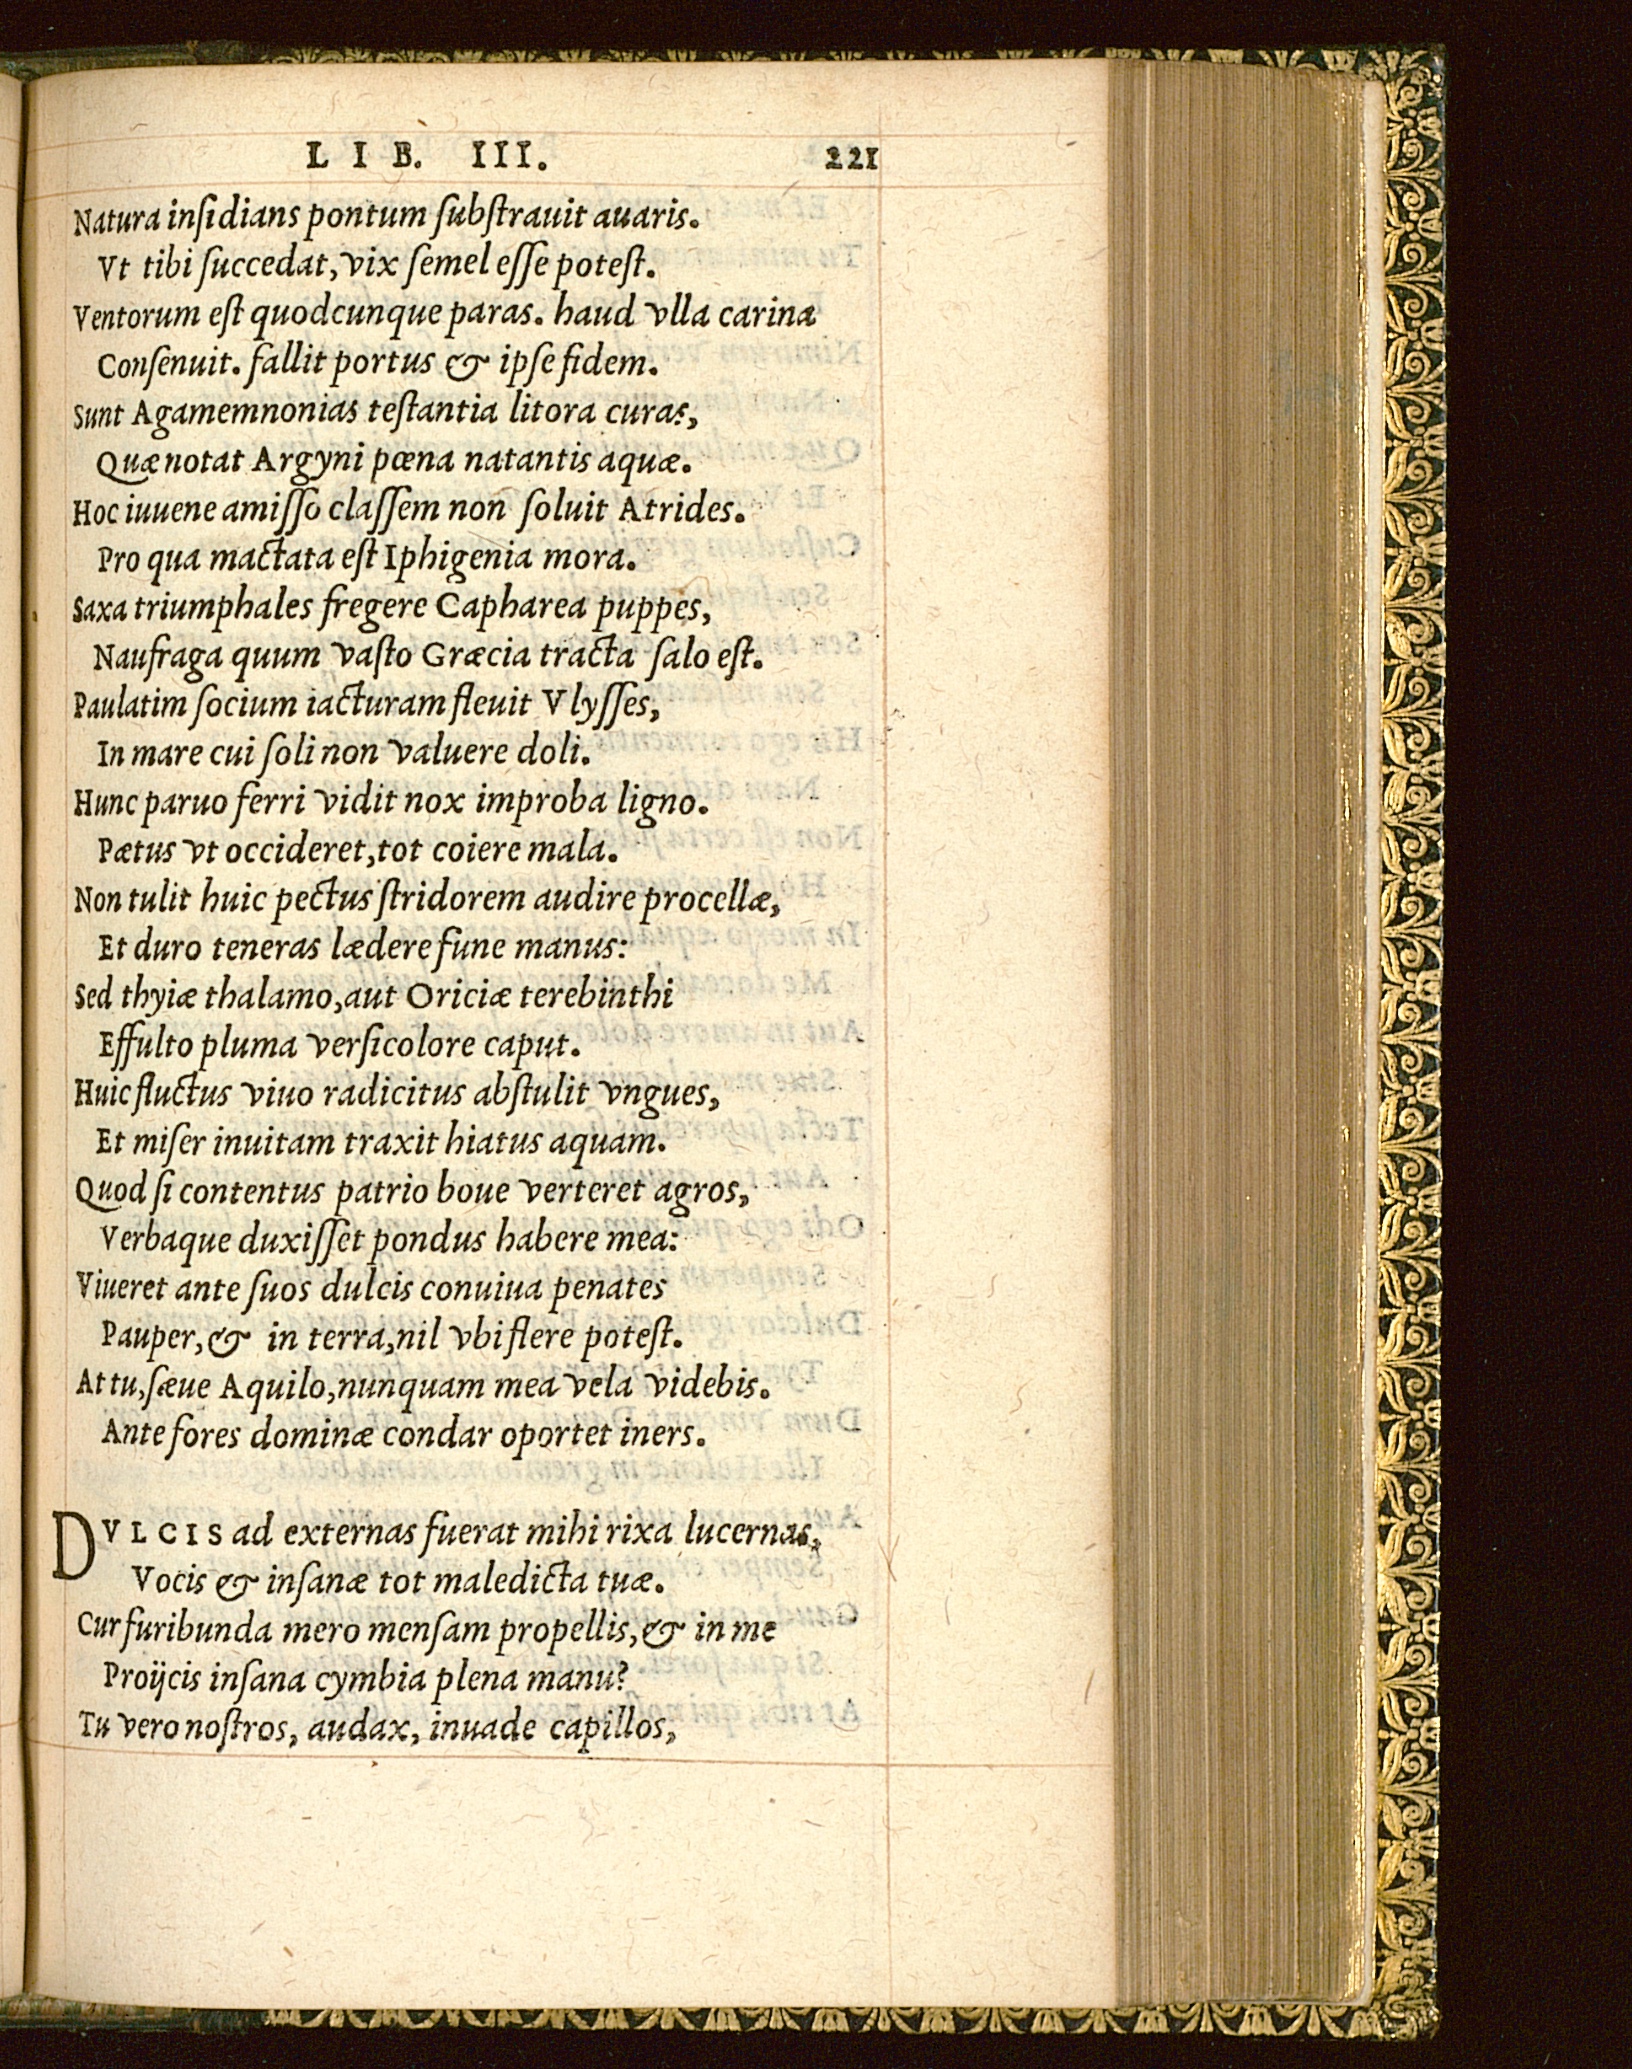 LIB. III. 221
Natura inſidians pontum ſubſtrauit auaris.
Vt tibi ſuccedat, vix ſemel eſſe poteſt.
Ventorum eſt quodcunque paras. haud vlla carina
Conſenuit. fallit portus & ipſe fidem.
Sunt Agamemnonias teſtantia litora curas,
Quæ notat Argyni pœna natantis aquæ.
Hoc iuuene amiſſo claſſem non ſoluit Atrides.
Pro qua mactata eſt Iphigenia mora.
Saxa triumphales fregere Capharea puppes,
Naufraga quum vaſto Græcia tracta ſalo eſt.
Paulatim ſocium iacturam fleuit Vlyſſes,
In mare cui ſoli non valuere doli.
Hunc paruo ferri vidit nox improba ligno.
Pætus vt occideret, tot coiere mala.
Non tulit huic pectus ſtridorem audire procellæ,
Et duro teneras lædere fune manus:
Sed thyiæ thalamo, aut Oriciæ terebinthi
Effulto pluma verſicolore caput.
Huic fluctus viuo radicitus abſtulit vngues,
Et miſer inuitam traxit hiatus aquam.
Quod ſi contentus patrio boue verteret agros,
Verbaque duxiſſet pondus habere mea:
Viueret ante ſuos dulcis conuiua penates
Pauper, & in terra, nil vbi flere poteſt.
At tu, ſæue Aquilo, nunquam mea vela videbis.
Ante fores dominæ condar oportet iners.
DVLCIS ad externas fuerat mihi rixa lucernas,
Vocis & inſanæ tot maledicta tuæ.
Cur furibunda mero menſam propellis, & in me
Proijcis inſana cymbia plena manu?
Tu vero noſtros, audax, inuade capillos,